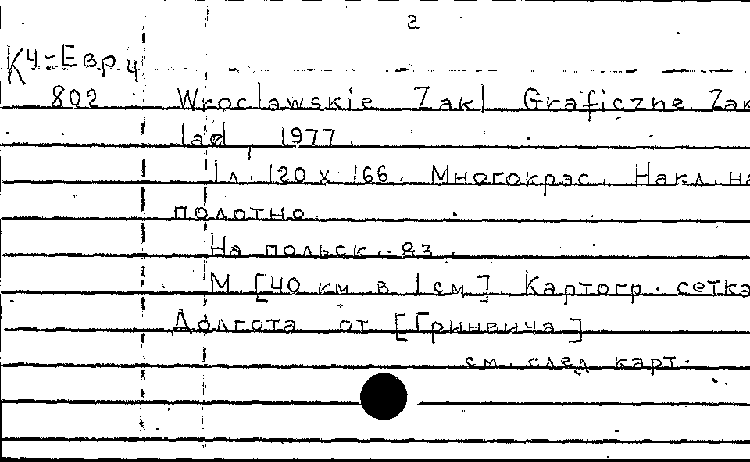 2
К4=Евр.4
802 Wroclawskie Zakl Graficzne Zak
lad, 1977.
1л. 120 х 166. Многокрас. Накл. на
полотно.
На польск. яз.
М [40 км в 1 см] Картогр. сетка
Долгота от [Гринвича]
см. след карт.